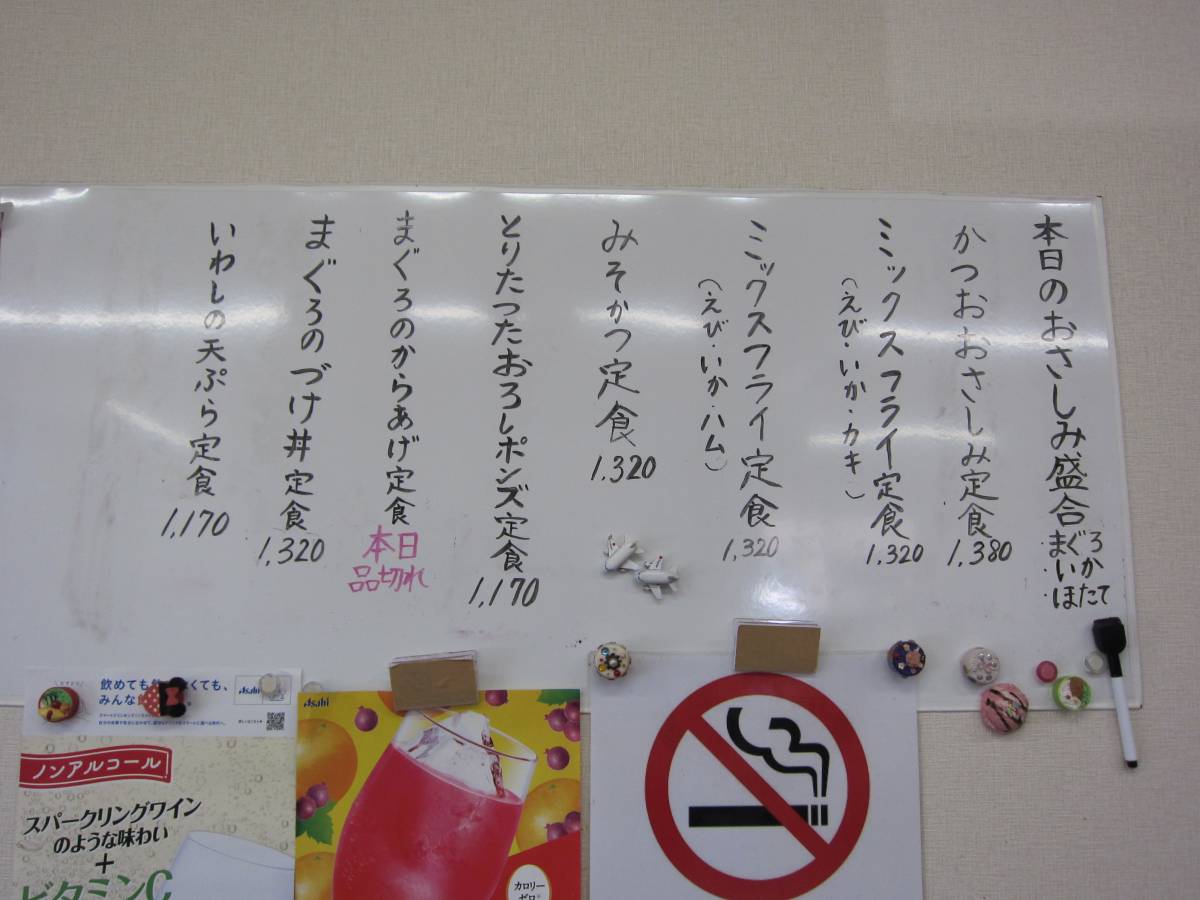 本日のおさしみ盛合
まぐろ
いか
ほたて
かつおおさしみ定食
1,380
ミックスフライ定食
1,320
(えび・いか・カキ)
ミックスフライ定食
1,320
(えび・いか・ハム)
みそかつ定食
1,320
とりたつたおろしポンズ定食
1,170
まぐろのからあげ定食
本日
品切れ
まぐろのづけ丼定食
1,320
いわしの天ぷら定食
1,170
飲めても飲めなくても、
みんな
Asahi
ノンアルコール
スパークリングワイン
のような味わい
+
ビタミンC
Asahi
カロリー
ゼロ